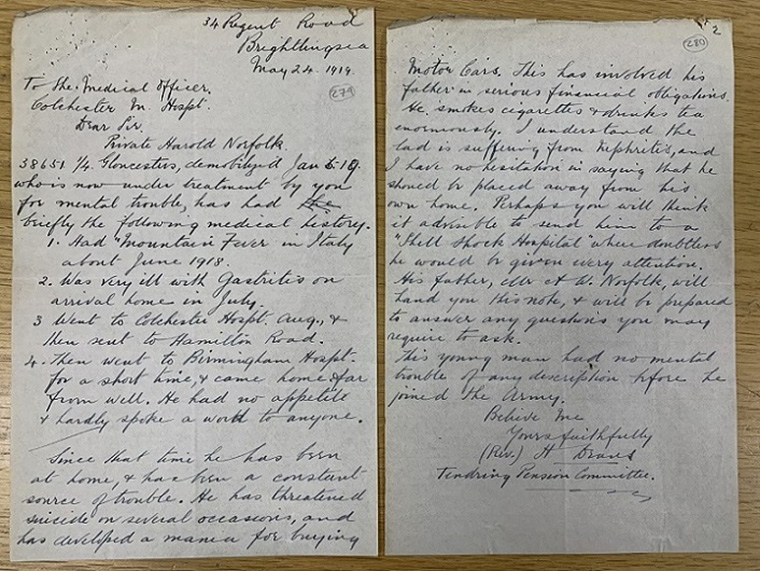 34 Regent Road
Brightlingsea
May 24. 1919.
279
To the Medical Officer,
Colchester M. Hospt.
Dear Sir,
Private Harold Norfolk
38651 1/4. Gloucesters, demobilized Jan
who is now under treatment by you
for mental trouble, has had the
briefly the following medical history.
1. Had "Mountain Fever in Italy
about June 1918.
2. Was very ill with Gastritis on
arrival home in July.
3 Went to Colchester Hospt. Aug., &
then sent to Hamilton Road.
4. Then went to Birmingham Hospt.
for a short time, & came home far
from well. He had no appetite
& hardly spoke a word to anyone.
Since that time he has been
at home, & has been a constant
source of trouble. He has threatened
suicide on several occasions, and
has developed a mania for buying
2
280
Motor Cars. This has involved his
father in serious financial obligations.
He smokes cigarettes & drinks tea
enormously. I understand the
lad is suffering from Nephritis, and
I have no hesitation in saying that he
should be placed away from his
own home. Perhaps you will think
it advisable to send him to a
"Shell Shock Hospital" where doubtless
he would be given every attention.
His father, Mr A W. Norfolk, will
hand you this note, & will be prepared
to answer any questions you may
require to ask.
This young man had no mental
trouble of any description before he
joined the Army.
Believe Me
Yours faithfully
(Rev.) A
Tendring Pension Committee.